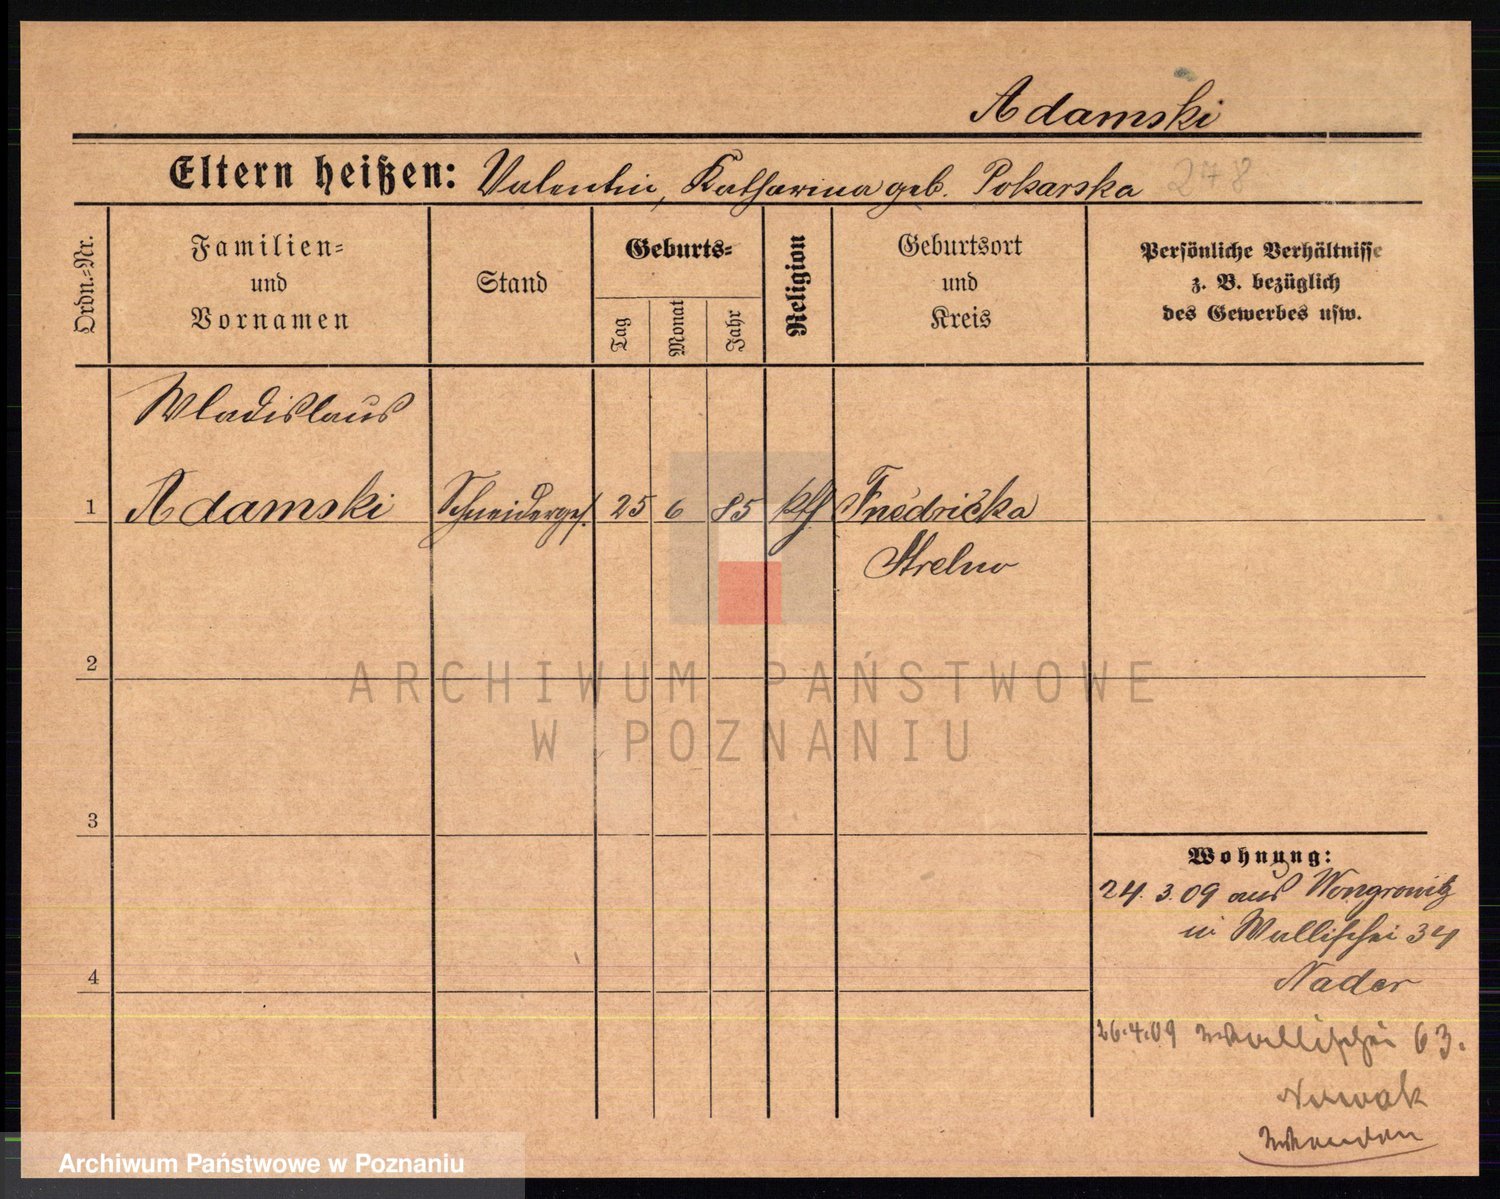 Adamski
Eltern heißen: Valentin, Katharina geb. Pokarska 278
Ordn.-Nr.
Familien-
und
Vornamen
Stand
Geburts-
Tag
Monat
Jahr
Religion
Geburtsort
und
Kreis
Persönliche Verhältnisse
z. B. bezüglich
des Gewerbes usw.
Wladislaus
1 Adamski Schneiderges. 25 6 85 kth
Strelno
2
3
4
Wohnung:
24. 3. 09 aus Wongrowitz
in Wallischei 34
Nader
26.4.09 Wallischei 63.
Nowak
ARCHIWUM PAŃSTWOWE
W POZNANIU
Archiwum Państwowe w Poznaniu